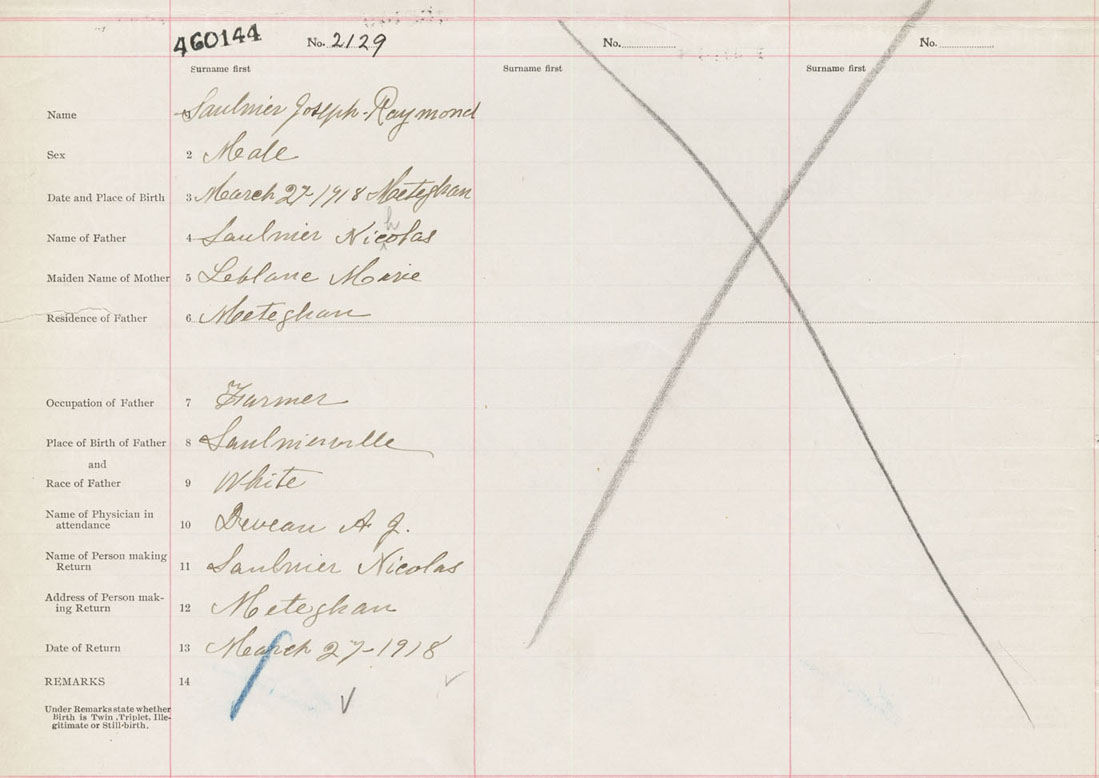 460144 No. 2129 No. No.
Surname first Surname first Surname first
Name 1 Saulnier Joseph-Raymond
Sex 2 Male
Date and Place of Birth 3 March 27-1918 Meteghan
h
Name of Father 4 Saulnier Nicolas
Maiden Name of Mother 5 Leblanc Marie
Residence of Father 6 Meteghan
Occupation of Father 7 Farmer
Place of Birth of Father 8 Saulnierville
and
Race of Father 9 White
Name of Physician in
attendance 10 Deveau A J.
Name of Person making
Return 11 Saulnier Nicolas
Address of Person mak-
ing Return 12 Meteghan
Date of Return 13 March 27-1918
REMARKS 14
Under Remarks state whether
Birth is Twin, Triplet, Ille-
gitimate or Still-birth.